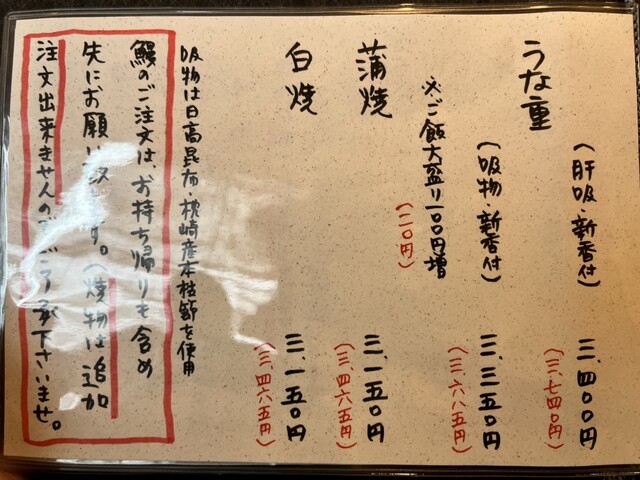 うな重
(肝吸・新香付) 三、四〇〇円
(三、七四〇円)
(吸物・新香付) 三、三五〇円
(三、六八五円)
※ご飯大盛り一〇〇円増
(一一〇円)
蒲焼 三、一五〇円
(三、四六五円)
白焼 三、一五〇円
(三、四六五円)
吸物は日高昆布・枕崎産本枯節を使用
鰻のご注文は、お持ち帰りも含め
先にお願い致します。(焼物は追加
注文出来ませんのでご了承下さいませ。